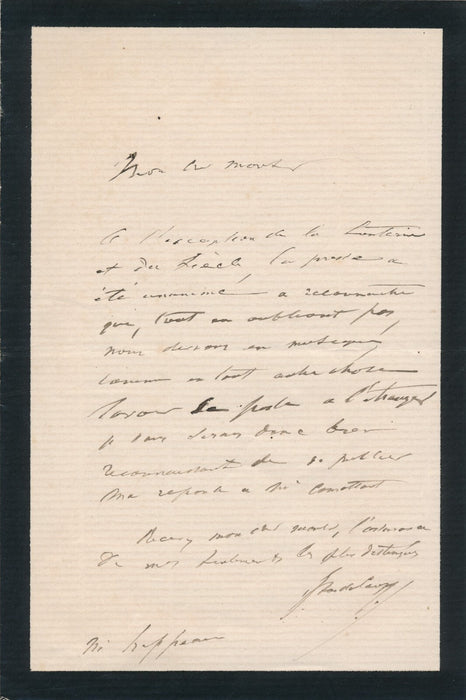 Mon cher monsieur
A l'exception de la Lanterne
et du Siècle, la presse a
été unanime a reconnaitre
que, tout en oubliant pas,
nous devons en musique,
comme en tout autre chose
savoir se a l'étranger
je vous serais donc bien
reconnaissant de publier
ma reponse a Mr
Recevez mon cher monsieur, l'assurance
de mes sentiments les plus distingués
Mr